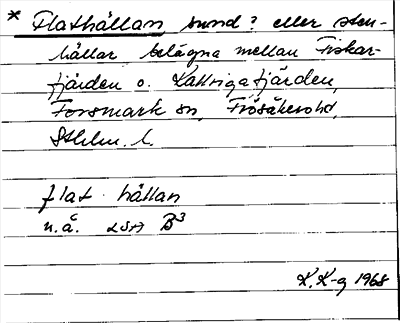 * Flathällan sund? eller sten-
hällar belägna mellan Fiskar-
fjärden o. Kallrigafjärden,
Forsmark sn, Frösåkers hd,
Sthlm. l.
flat hällan
n.ä. LSA B3
K.K-g 1968